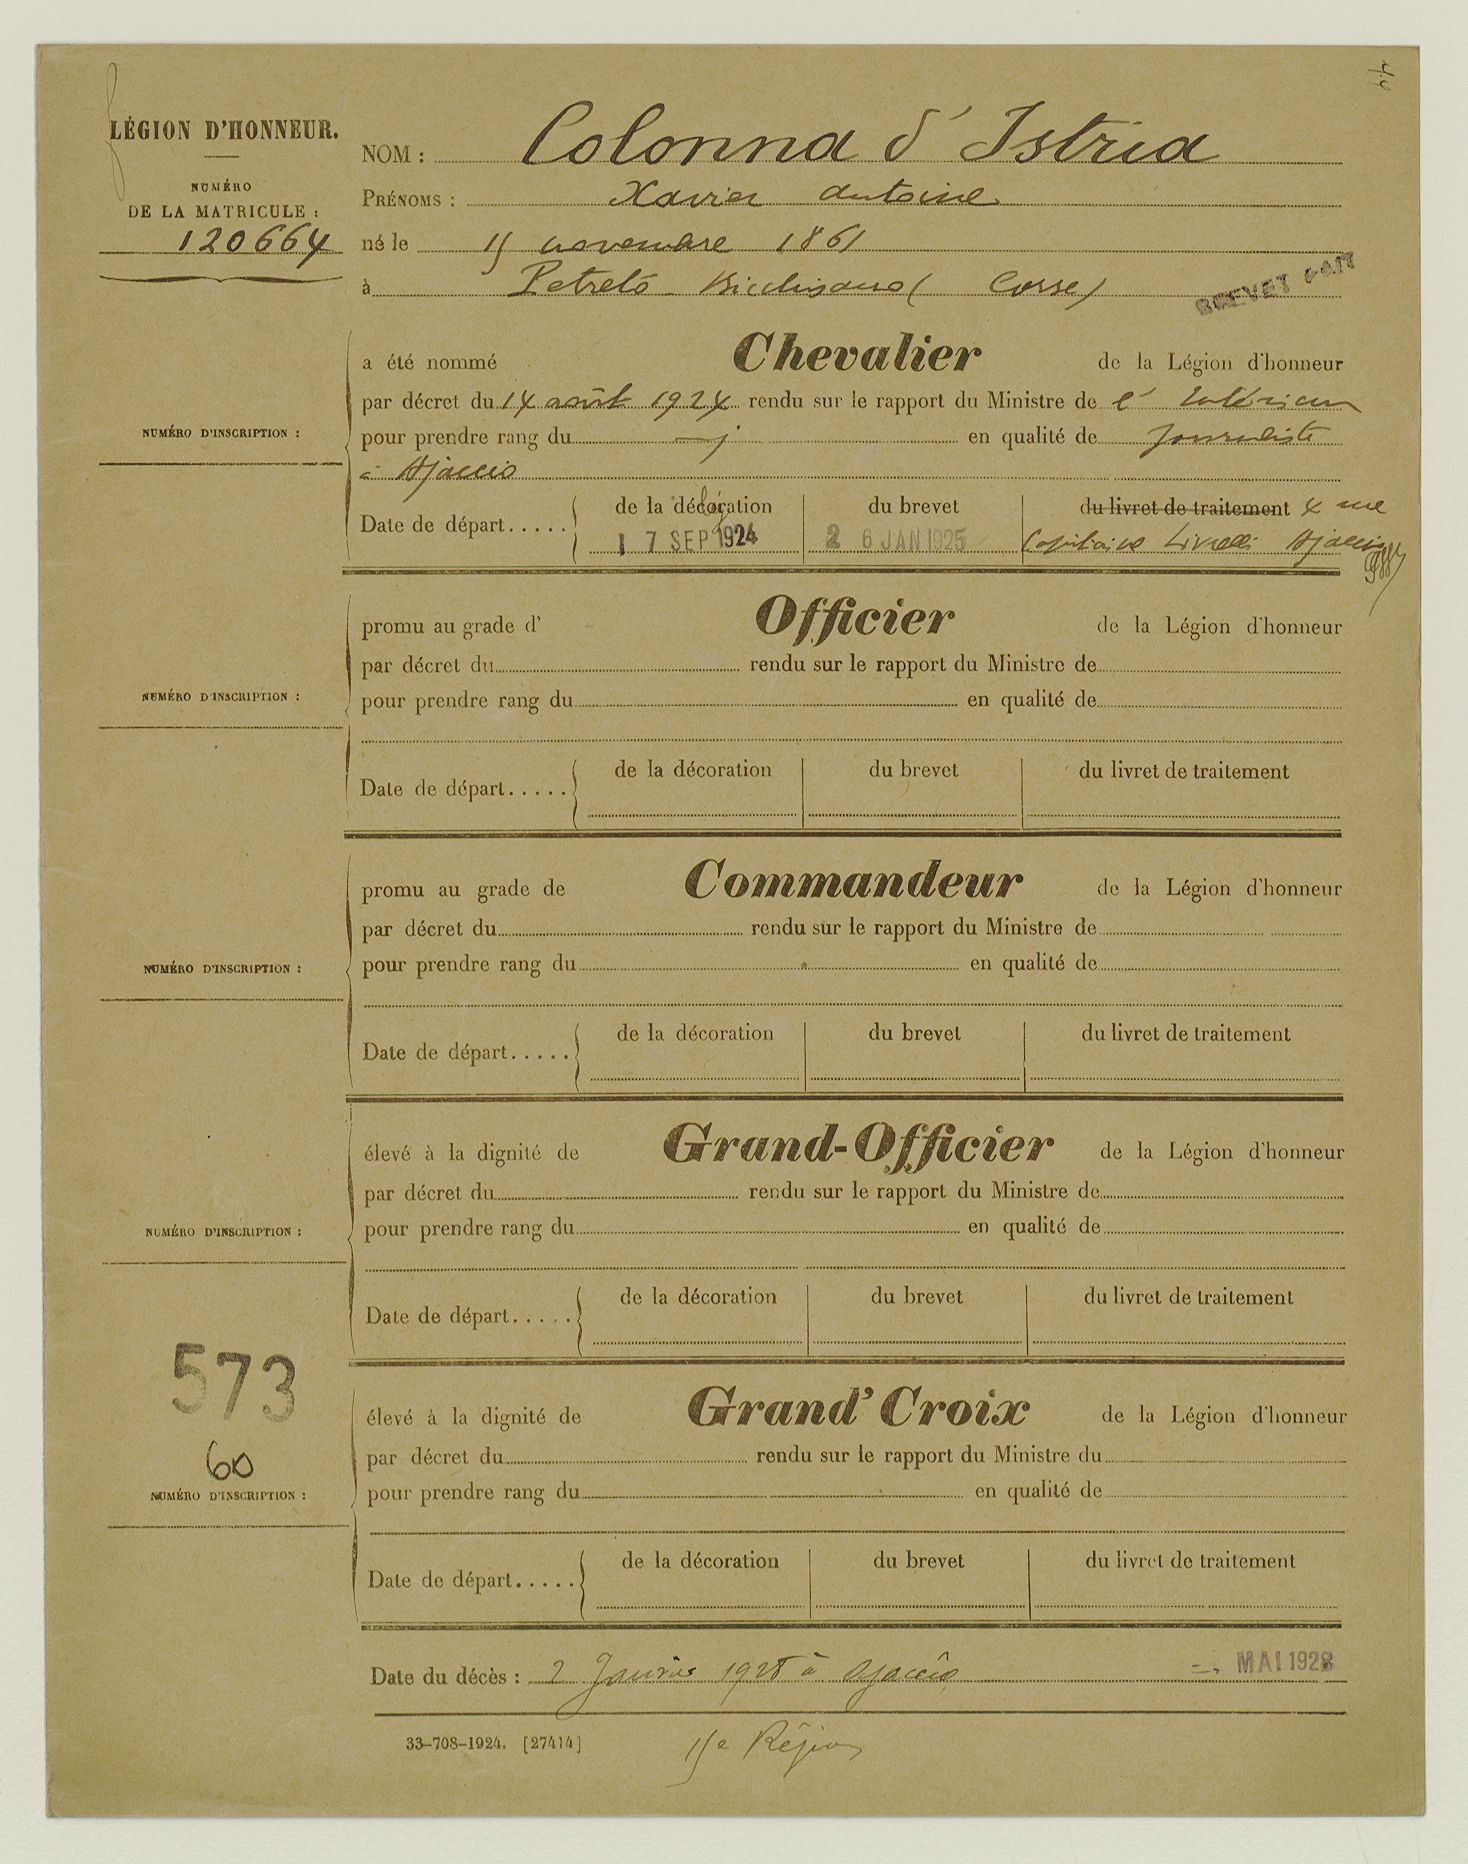 LÉGION D'HONNEUR.
NUMÉRO
DE LA MATRICULE :
120664
NOM : Colonna d'Istria
PRÉNOMS : Xavier Antoine
né le 15 novembre 1861
à Petreto-Bicchisano (Corse)
BREVET FAIT
a été nommé Chevalier de la Légion d'honneur
par décret du 14 août 1924 rendu sur le rapport du Ministre de l'Intérieur
NUMÉRO D'INSCRIPTION :
pour prendre rang du en qualité de Journaliste
à Ajaccio
Date de départ..... de la décoration du brevet du livret de traitement 4 rue
17 SEP 1924 26 JAN 1925 Capitaine Livrelli Ajaccio
promu au grade d' Officier de la Légion d'honneur
par décret du rendu sur le rapport du Ministre de
NUMÉRO D'INSCRIPTION :
pour prendre rang du en qualité de
Date de départ..... de la décoration du brevet du livret de traitement
promu au grade de Commandeur de la Légion d'honneur
par décret du rendu sur le rapport du Ministre de
NUMÉRO D'INSCRIPTION :
pour prendre rang du en qualité de
Date de départ..... de la décoration du brevet du livret de traitement
élevé à la dignité de Grand-Officier de la Légion d'honneur
par décret du rendu sur le rapport du Ministre de
NUMÉRO D'INSCRIPTION :
pour prendre rang du en qualité de
Date de départ..... de la décoration du brevet du livret de traitement
573
60
élevé à la dignité de Grand'Croix de la Légion d'honneur
par décret du rendu sur le rapport du Ministre du
NUMÉRO D'INSCRIPTION :
pour prendre rang du en qualité de
Date de départ..... de la décoration du brevet du livret de traitement
Date du décès : 2 Janvier 1928 à Ajaccio MAI 1928
33-708-1924. [27414]
15e Région